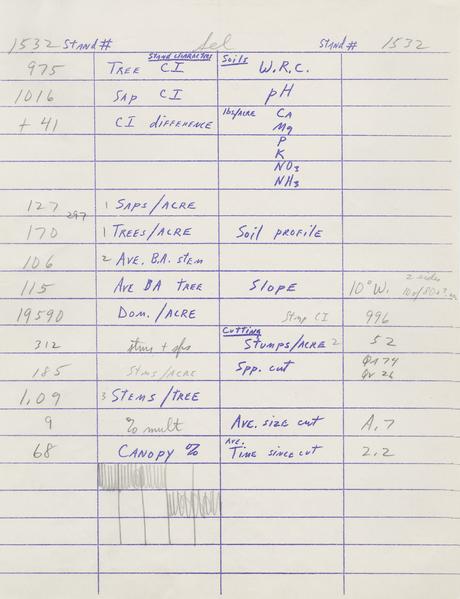 1532 STAND# Sel STAND# 1532
STAND CHARACTERS Soils
975 TREE CI W.R.C.
1016 SAP CI pH
+ 41 CI diffERENCE lbs/ACRE CA
Mg
P
K
NO3
NH3
127 1 SAPS/ACRE
297
170 1 TREES/ACRE Soil PROFILE
106 2 AVE. B.A. STEM
115 AVE BA TREE SLOPE 10° W. 2 sides
19590 DOM./ACRE Stmp CI 996
Cutting
312 stms + sps STUMPS/ACRE 2 52
185 Stms/ACRE Spp. cut QA 74
Qv 26
1.09 3 STEMS/TREE
9 % mult AVE. SIZE CUT A.7
AVE.
68 CANOPY % TIME SINCE CUT 2.2